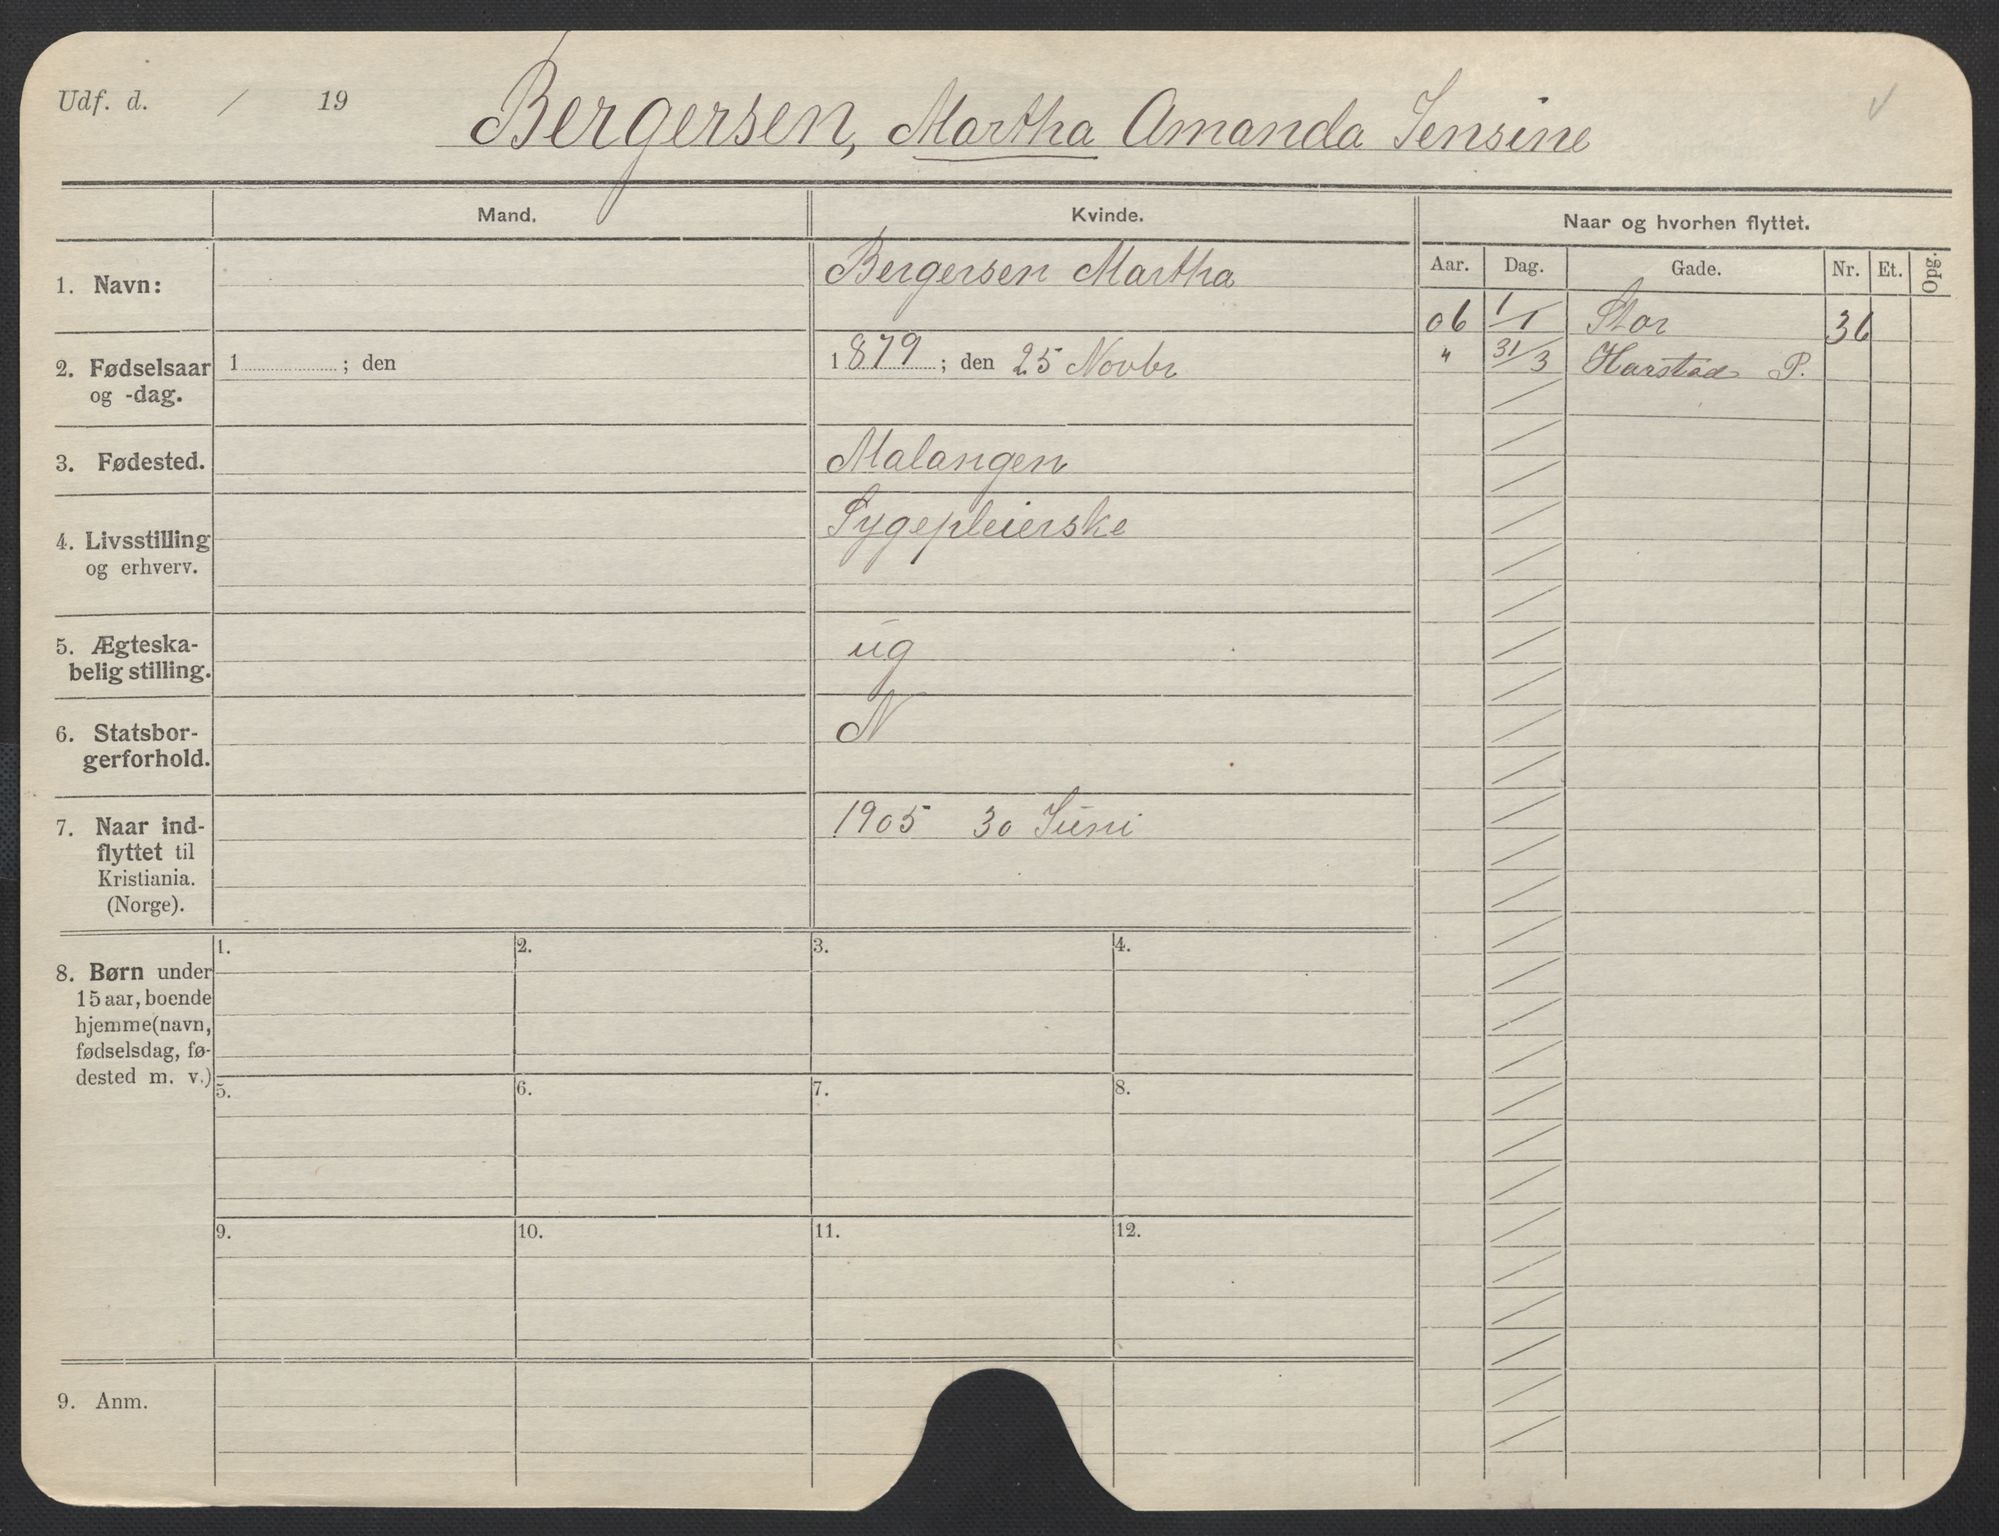 Udf. d. / 19
Bergersen, Martha Amanda Jensine
Mand.
Kvinde.
Naar og hvorhen flyttet.
Aar. Dag. Gade. Nr. Et. Opg.
1. Navn:
Bergersen Martha
06 1/1 Stor 36
2. Fødselsaar
og -dag.
1 ; den
1879 ; den 25 Novbr
" 31/3 Harstad P.
3. Fødested.
Malangen
4. Livsstilling
og erhverv.
Sygepleierske
5. Ægteska-
belig stilling.
ug
6. Statsbor-
gerforhold.
N
7. Naar ind-
flyttet til
Kristiania.
(Norge).
1905 30 Juni
8. Børn under
15 aar, boende
hjemme (navn,
fødselsdag, fø-
dested m. v.)
1. 2. 3. 4.
5. 6. 7. 8.
9. 10. 11. 12.
9. Anm.